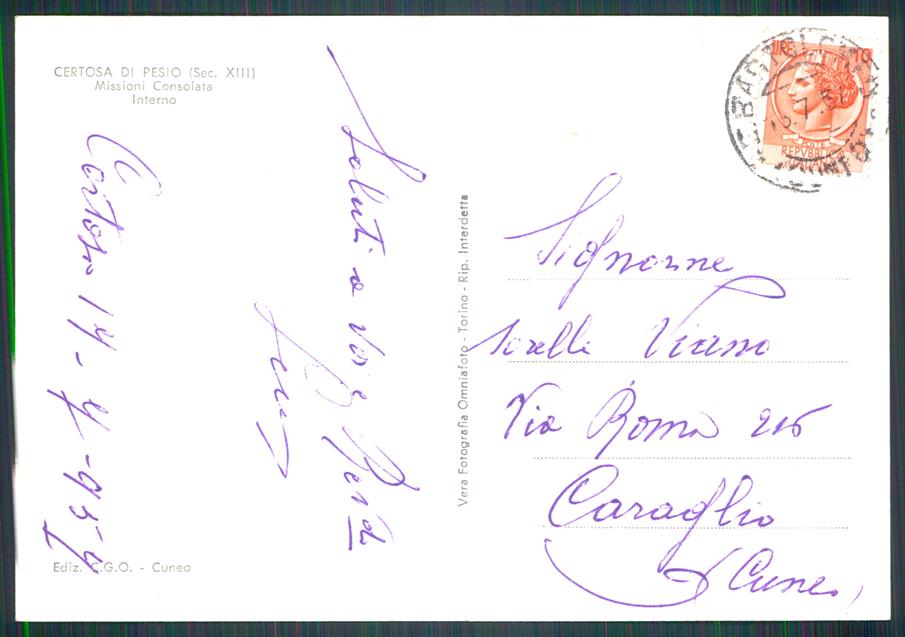 CERTOSA DI PESIO (Sec. XIII)
Missioni Consolata
Interno
Certosa 14-7-954
Saluti a voi e
Ediz. C.G.O. - Cuneo
Vera Fotografia Omniafoto - Torino - Rip. Interdetta
LIRE 10
POSTE
REPVBBLICA
Signorine
sorelle Vicano
Via Roma 216
Caraglio
(Cuneo)